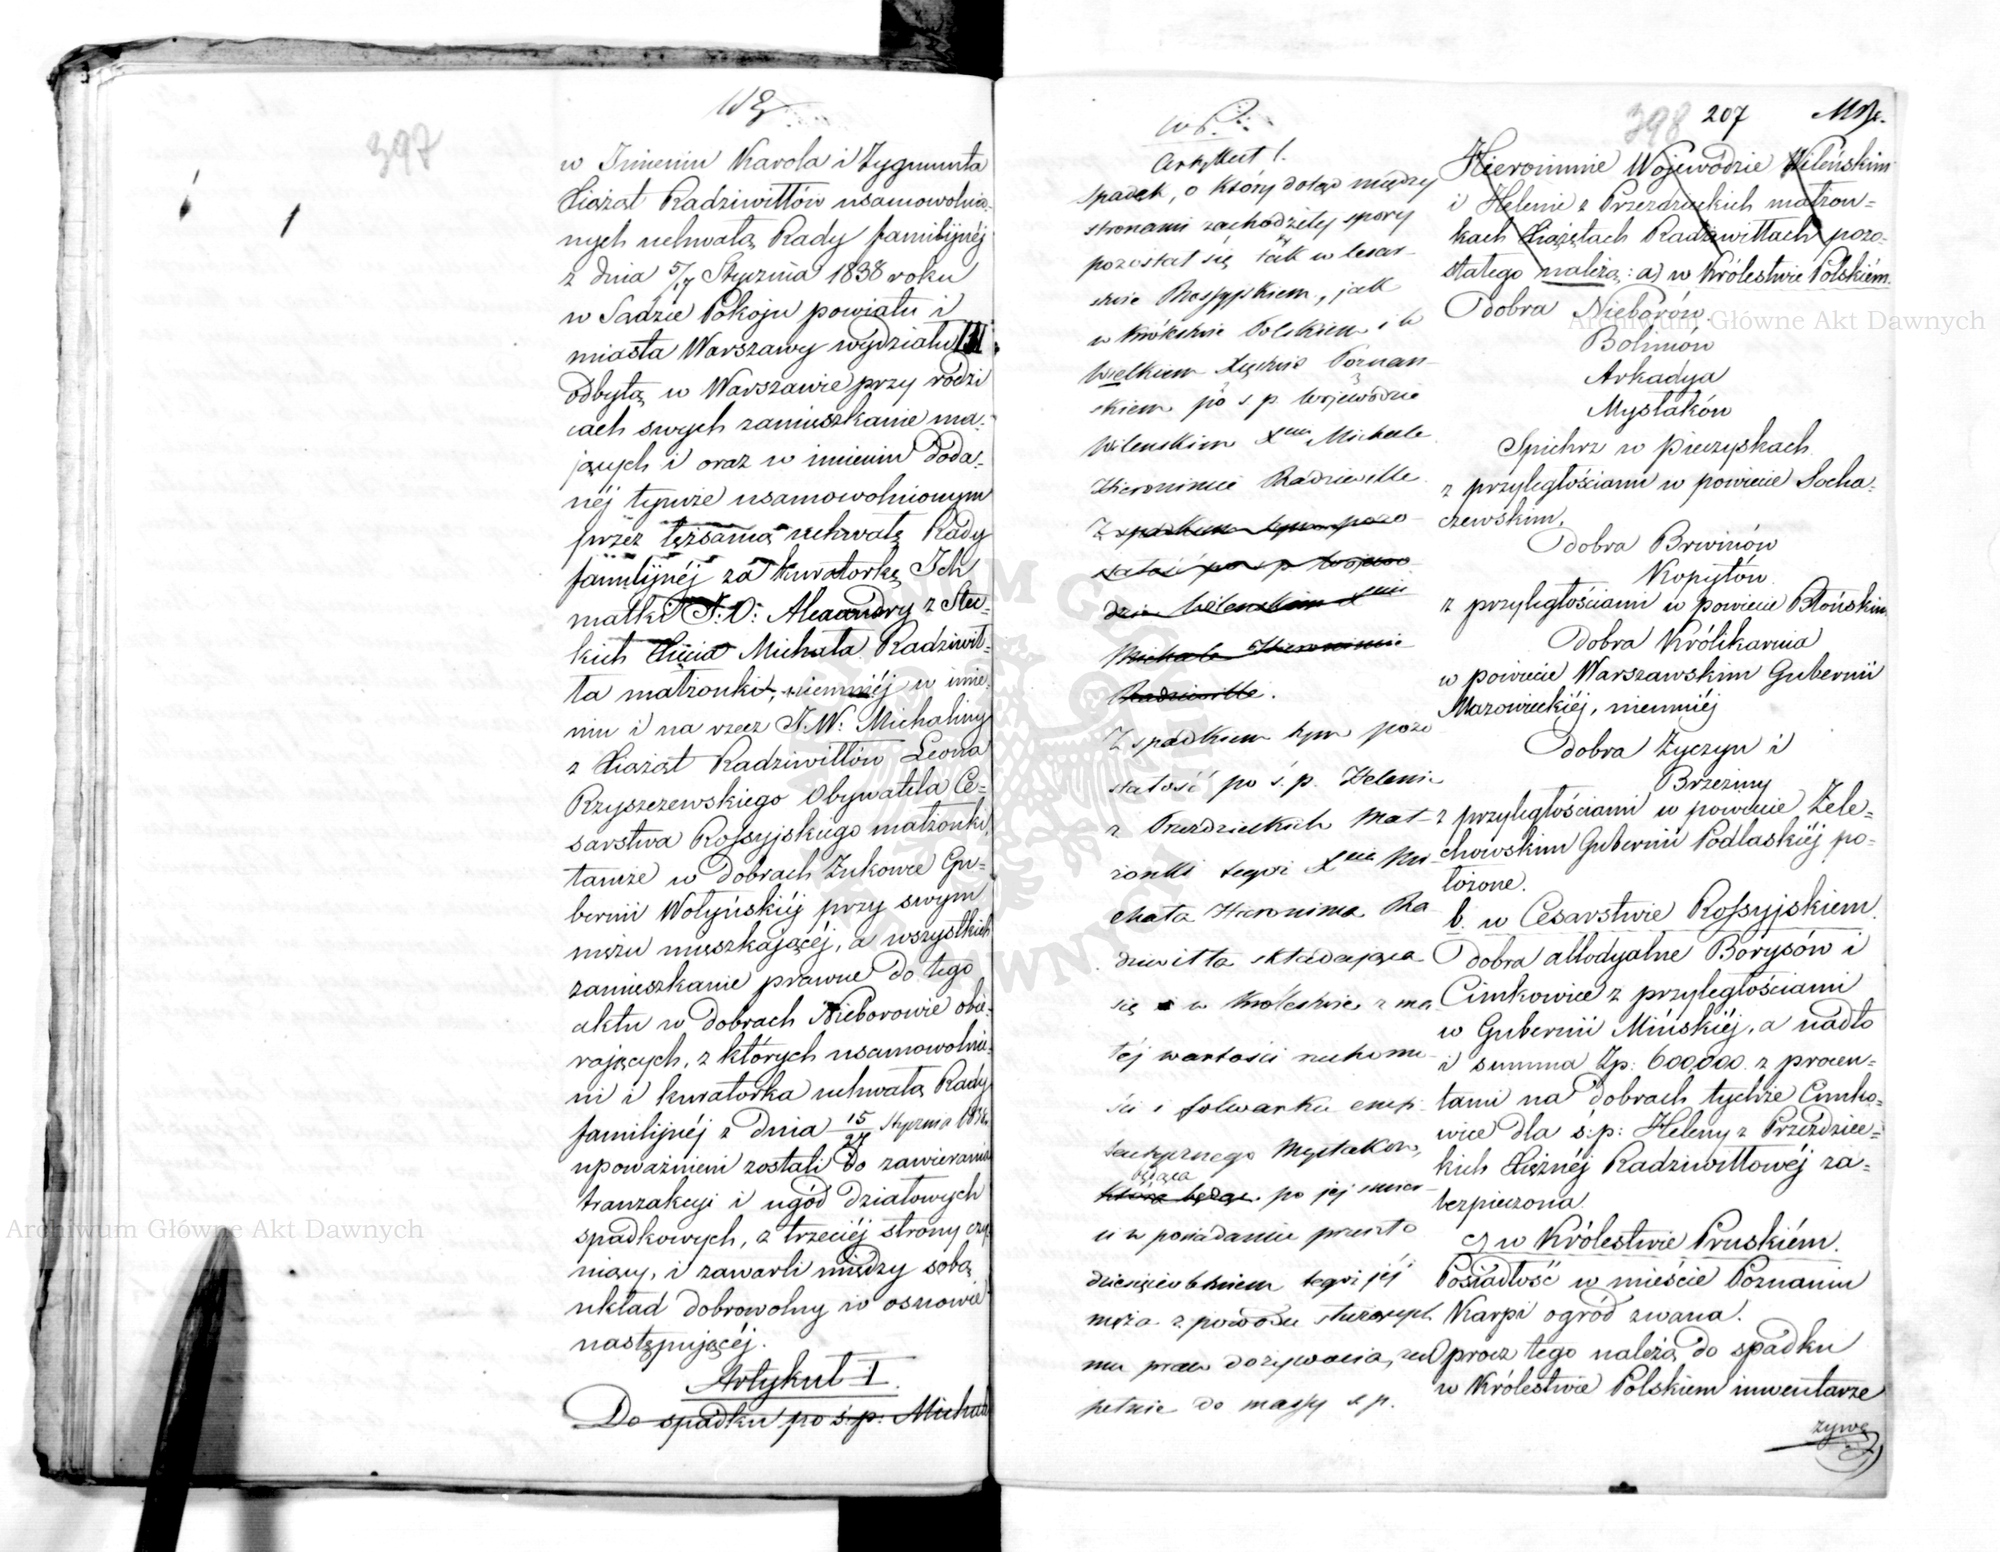 397
w Imieniu Karola i Zygmunta
Xiążąt Radziwiłłów usamowolnio-
nych uchwałą Rady familijnéj
z dnia 5/17 Stycznia 1838 roku
w Sądzie Pokoju powiatu i
miasta Warszawy wydziału III
odbytą w Warszawie przy rodzi
cach swych zamieszkanie ma-
jących i oraz w imieniu doda-
néj tymże usamowolnionym
przez tęż samą uchwałę Rady
familijnéj za kuratorkę Ich
matki J: O: Alexandry z Stec-
kich Xięcia Michała Radziwił-
ła małżonki, niemniéj w imie-
niu i na rzecz J.W: Michaliny
z Xiążąt Radziwiłłów Leona
Rzyszczewskiego Obywatela Ce-
sarstwa Rossyjskiego małżonki,
tamże w dobrach Zukowce Gu-
bernii Wołyńskiéj przy swym
mężu mieszkającéj, a wszystkich
zamieszkanie prawne do tego
aktu w dobrach Nieborowie obie-
rających, z których usamowolnie-
ni i kuratorka uchwałą Rady
familijnéj z dnia 15/27 Stycznia 1838
upoważnieni zostali do zawierania
tranzakcyi i ugód działowych
spadkowych, z trzeciéj strony czy-
niący, i zawarli między sobą
układ dobrowolny w osnowie
następującéj.
Artykuł I.
Do spadku po ś.p: Michale
398 207
Artykuł 1.
Spadek, o który dotąd między
stronami zachodziły spory
pozostał się tak w Cesar-
stwie Rossyjskiem, jak
w Królestwie Polskiem i w
Wielkiem Xięstwie Poznań-
skiem po ś p Wojewodzie
Wileńskim Xciu Michale
Hieronimie Radziwille
Z spadkiem tym pozo
stałość po ś p Wojewo
dzie Wileńskim Xciu
Michale Hieronimie
Radziwille.
Z spadkiem tym pozo
stałość po ś.p. Helenie
z Przezdzieckich Mał-
żonki tegoż Xcia Mi-
chała Hieronima Ra
dziwiłła składająca
się w Królestwie z ma
łéj wartości ruchomo
ści i folwarku emfi
teutycznego Mysłaków,
będąca
która będąc po jej śmier-
ci w posiadaniu przeszło
dziesięcioletniem tegoż jéj
męża z powodu służących
mu praw dożywocia, zu
pełnie do massy ś p.
Hieronimie Wojewodzie Wileńskim
i Helenie z Przezdzieckich małżon-
kach Xiążętach Radziwiłłach pozo-
stałego należą: a) w Królestwie Polskiém.
Dobra Nieborów.
Bolimów
Arkadya
Mysłaków
Spichrz w Pieczyskach
z przyległościami w powiecie Socha-
czewskim,
Dobra Brwinów
Kopytów.
z przyległościami w powiecie Błońskim
Dobra Królikarnia
w powiecie Warszawskim Gubernii
Mazowieckiéj, niemniéj
Dobra Życzyn i
Brzeziny
z przyległościami w powiecie Żele-
chowskim Gubernii Podlaskiéj po-
łożone.
b. w Cesarstwie Rossyjskiem.
Dobra allodyalne Borysów i
Cimkowice z przyległościami
w Gubernii Mińskiéj, a nadto
i summa Zp: 600,000. z procen-
tami na dobrach tychże Cimko-
wice dla ś:p: Heleny z Przeździec-
kich Xiężnéj Radziwiłłowéj za-
bezpieczona.
c) w Królestwie Pruskiém.
Posiadłość w mieście Poznaniu
Karpi ogród zwana.
Oprocz tego należą do spadku
w Królestwie Polskiem inwentarze
żywe
Archiwum Główne Akt Dawnych
Archiwum Główne Akt Dawnych